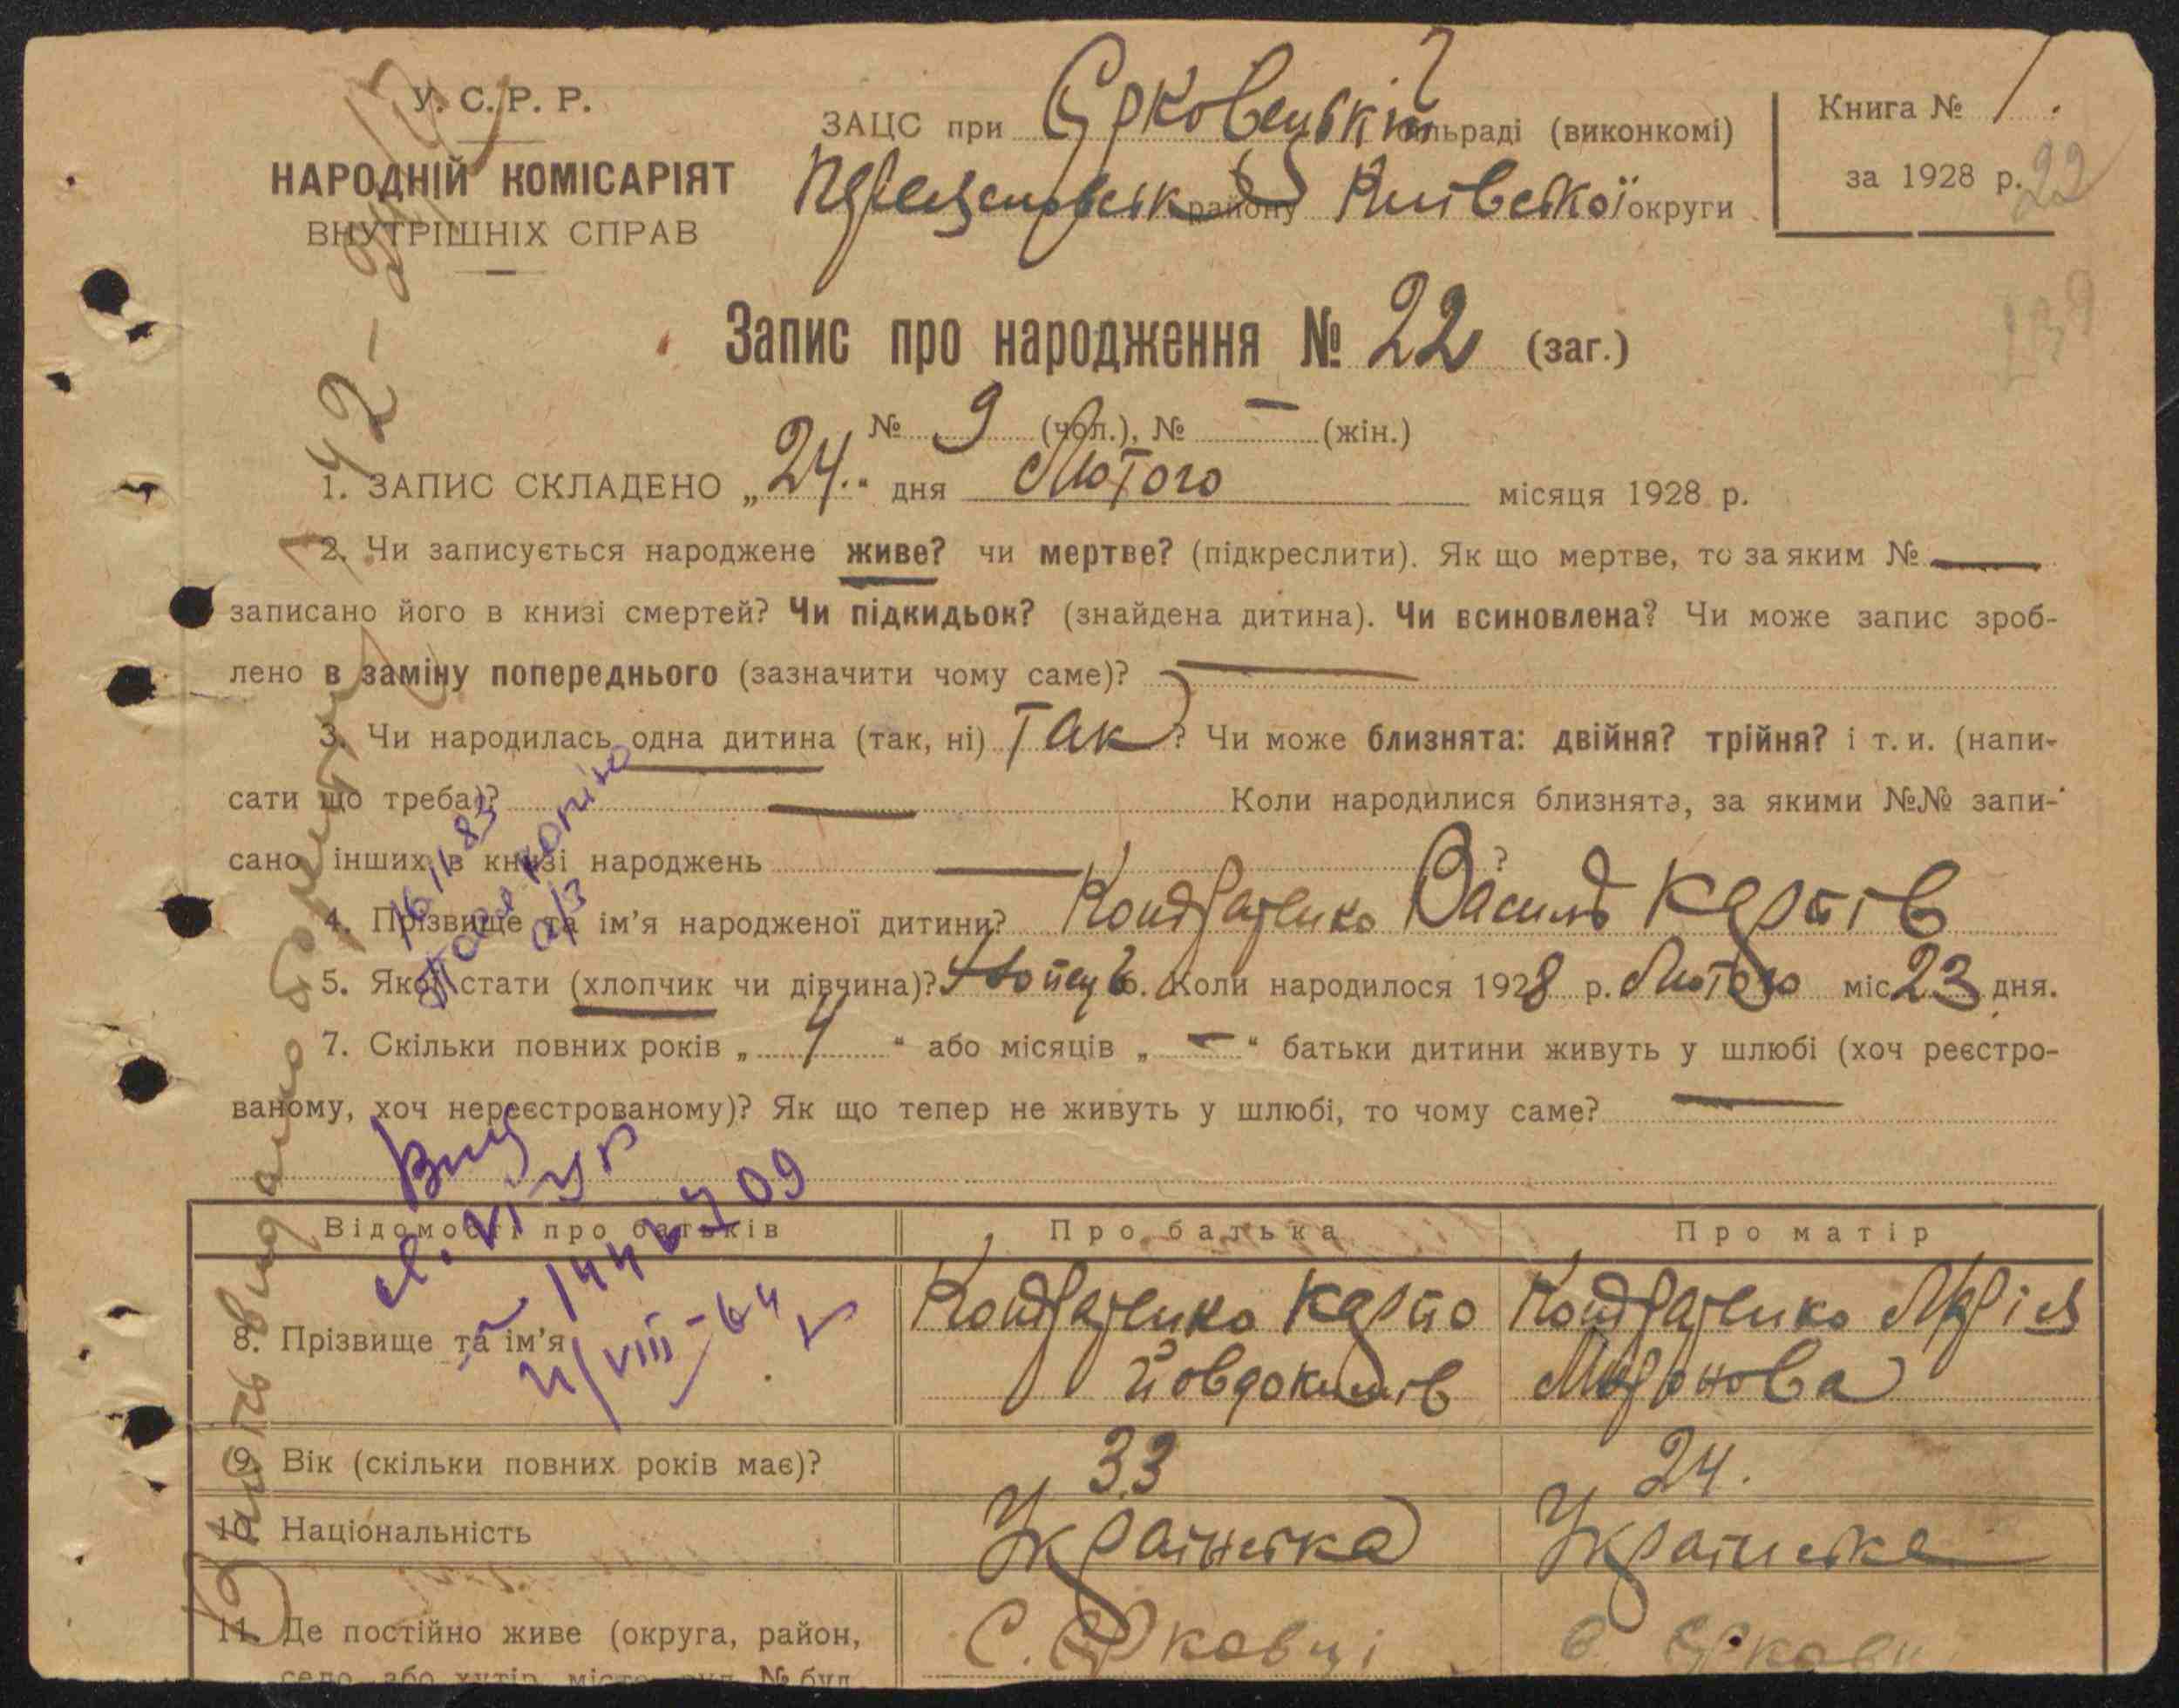 У. С. Р. Р.
НАРОДНІЙ КОМІСАРІЯТ
ВНУТРІШНІХ СПРАВ
ЗАЦС при Єрковецькій сільраді (виконкомі)
району Київської округи
Книга № 1.
за 1928 р. 22
139
Запис про народження № 22 (заг.)
№ 9 (чол.), № — (жін.)
1. ЗАПИС СКЛАДЕНО „24.“ дня Лютого місяця 1928 р.
2. Чи записується народжене живе? чи мертве? (підкреслити). Як що мертве, то за яким № —
записано його в книзі смертей? Чи підкидьок? (знайдена дитина). Чи всиновлена? Чи може запис зроб-
лено в заміну попереднього (зазначити чому саме)? —
3. Чи народилась одна дитина (так, ні) Так? Чи може близнята: двійня? трійня? і т. и. (напи-
сати що треба)? — Коли народилися близнята, за якими №№ запи-
сано інших в книзі народжень — ?
4. Прізвище та ім’я народженої дитини? Кондратенко Василь Карпів
5. Якої стати (хлопчик чи дівчина)? 6. Коли народилося 1928 р. Лютого міс. 23 дня.
7. Скільки повних років „ 4 “ або місяців „ — “ батьки дитини живуть у шлюбі (хоч реєстро-
ваному, хоч нереєстрованому)? Як що тепер не живуть у шлюбі, то чому саме? —
Відомості про батьків Про батька Про матір
8. Прізвище та ім’я Кондратенко Карпо Кондратенко
Йовдокимів Миронова
9. Вік (скільки повних років має)? 33 24.
10. Національність Українська Українська
11. Де постійно живе (округа, район, С. Єрковці с. Єрковц
село або хутір, місто, вул. № буд.
16/І 83
VIII-64